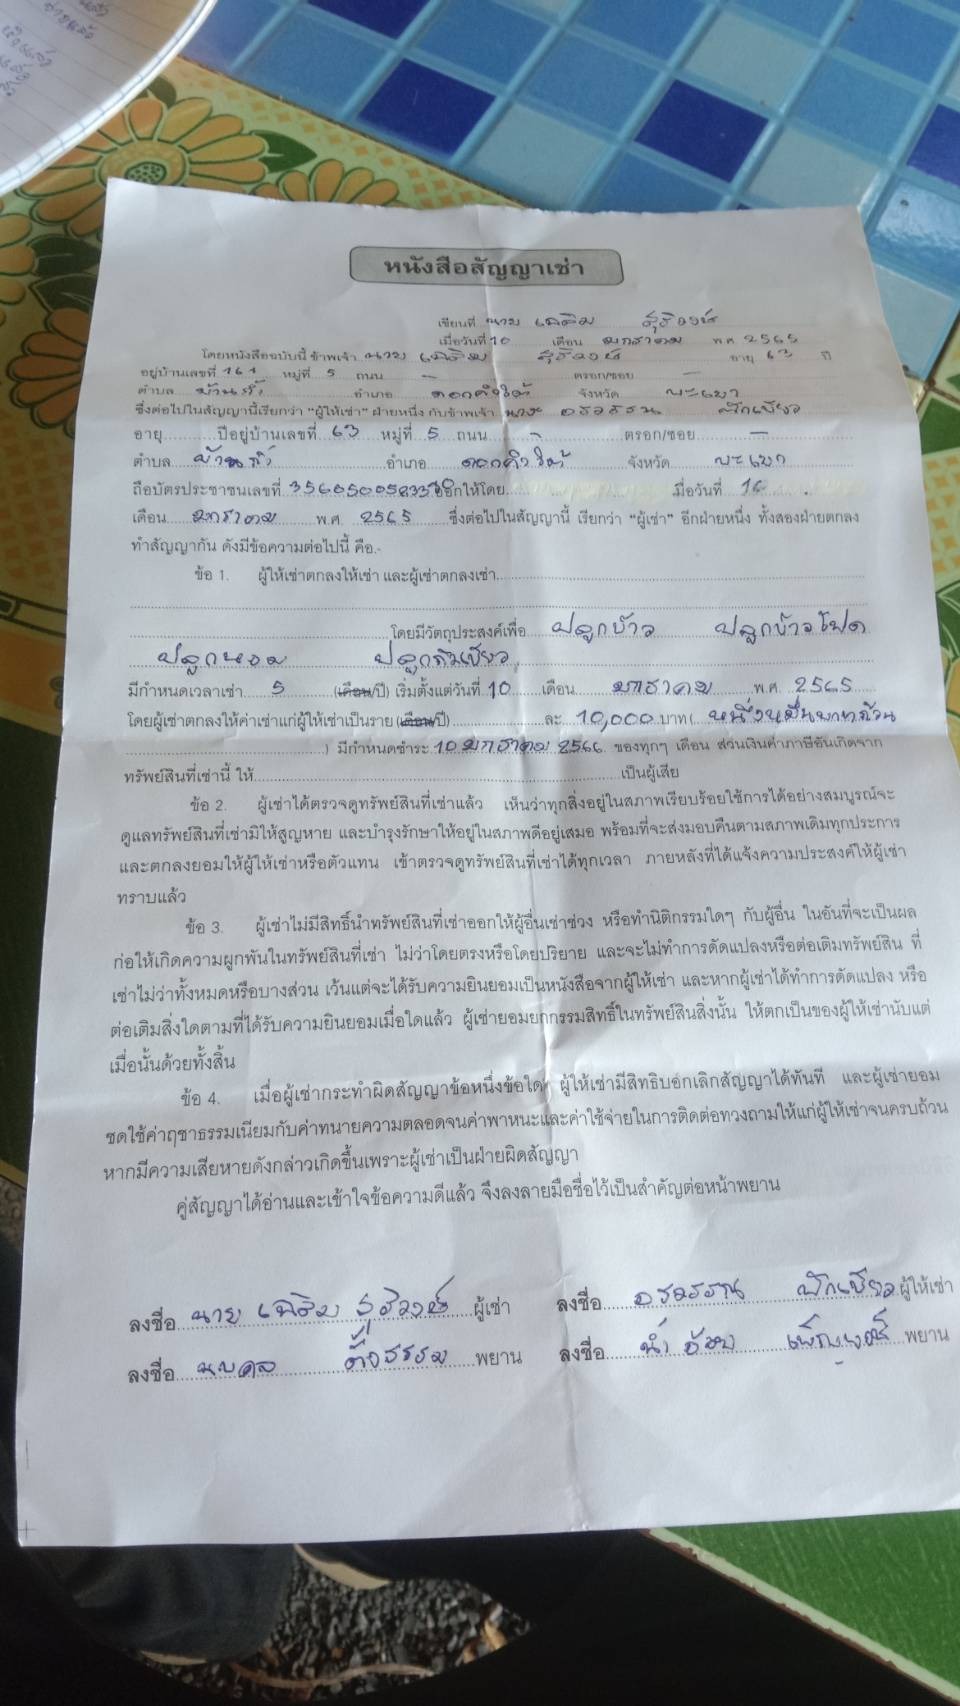 หนังสือสัญญาเช่า
เขียนที่ นาย เฉลิม สุริวงษ์
เมื่อวันที่ 10 เดือน มกราคม พ.ศ. 2565
โดยหนังสือฉบับนี้ ข้าพเจ้า นาย เฉลิม สุริวงษ์ อายุ 63 ปี
อยู่บ้านเลขที่ 161 หมู่ที่ 5 ถนน - ตรอก/ซอย -
ตำบล บ้านถ้ำ อำเภอ ดอกคำใต้ จังหวัด พะเยา
ซึ่งต่อไปในสัญญานี้เรียกว่า "ผู้ให้เช่า" ฝ่ายหนึ่ง กับข้าพเจ้า นาง อรวรรณ ฟักเขียว
อายุ ปีอยู่บ้านเลขที่ 63 หมู่ที่ 5 ถนน - ตรอก/ซอย -
ตำบล บ้านถ้ำ อำเภอ ดอกคำใต้ จังหวัด พะเยา
ถือบัตรประชาชนเลขที่ ออกให้โดย เมื่อวันที่ 16
เดือน มกราคม พ.ศ. 2565 ซึ่งต่อไปในสัญญานี้ เรียกว่า "ผู้เช่า" อีกฝ่ายหนึ่ง ทั้งสองฝ่ายตกลง
ทำสัญญากัน ดังมีข้อความต่อไปนี้ คือ.-
ข้อ 1. ผู้ให้เช่าตกลงให้เช่า และผู้เช่าตกลงเช่า
โดยมีวัตถุประสงค์เพื่อ ปลูกข้าว ปลูกข้าวโพด
ปลูกหอม ปลูกถั่วเขียว
มีกำหนดเวลาเช่า 5 (เดือน/ปี) เริ่มตั้งแต่วันที่ 10 เดือน มกราคม พ.ศ. 2565
โดยผู้เช่าตกลงให้ค่าเช่าแก่ผู้ให้เช่าเป็นราย (เดือน/ปี) ละ 10,000 บาท ( หนึ่งหมื่นบาทถ้วน
) มีกำหนดชำระ 10 มกราคม 2566 ของทุกๆ เดือน ส่วนเงินค่าภาษีอันเกิดจาก
ทรัพย์สินที่เช่านี้ ให้ เป็นผู้เสีย
ข้อ 2. ผู้เช่าได้ตรวจดูทรัพย์สินที่เช่าแล้ว เห็นว่าทุกสิ่งอยู่ในสภาพเรียบร้อยใช้การได้อย่างสมบูรณ์จะ
ดูแลทรัพย์สินที่เช่ามิให้สูญหาย และบำรุงรักษาให้อยู่ในสภาพดีอยู่เสมอ พร้อมที่จะส่งมอบคืนตามสภาพเดิมทุกประการ
และตกลงยอมให้ผู้ให้เช่าหรือตัวแทน เข้าตรวจดูทรัพย์สินที่เช่าได้ทุกเวลา ภายหลังที่ได้แจ้งความประสงค์ให้ผู้เช่า
ทราบแล้ว
ข้อ 3. ผู้เช่าไม่มีสิทธิ์นำทรัพย์สินที่เช่าออกให้ผู้อื่นเช่าช่วง หรือทำนิติกรรมใดๆ กับผู้อื่น ในอันที่จะเป็นผล
ก่อให้เกิดความผูกพันในทรัพย์สินที่เช่า ไม่ว่าโดยตรงหรือโดยปริยาย และจะไม่ทำการดัดแปลงหรือต่อเติมทรัพย์สิน ที่
เช่าไม่ว่าทั้งหมดหรือบางส่วน เว้นแต่จะได้รับความยินยอมเป็นหนังสือจากผู้ให้เช่า และหากผู้เช่าได้ทำการดัดแปลง หรือ
ต่อเติมสิ่งใดตามที่ได้รับความยินยอมเมื่อใดแล้ว ผู้เช่ายอมยกกรรมสิทธิ์ในทรัพย์สินสิ่งนั้น ให้ตกเป็นของผู้ให้เช่านับแต่
เมื่อนั้นด้วยทั้งสิ้น
ข้อ 4. เมื่อผู้เช่ากระทำผิดสัญญาข้อหนึ่งข้อใด ผู้ให้เช่ามีสิทธิบอกเลิกสัญญาได้ทันที และผู้เช่ายอม
ชดใช้ค่าฤชาธรรมเนียมกับค่าทนายความตลอดจนค่าพาหนะและค่าใช้จ่ายในการติดต่อทวงถามให้แก่ผู้ให้เช่าจนครบถ้วน
หากมีความเสียหายดังกล่าวเกิดขึ้นเพราะผู้เช่าเป็นฝ่ายผิดสัญญา
คู่สัญญาได้อ่านและเข้าใจข้อความดีแล้ว จึงลงลายมือชื่อไว้เป็นสำคัญต่อหน้าพยาน
ลงชื่อ นาย เฉลิม สุริวงษ์ ผู้เช่า ลงชื่อ อรวรรณ ฟักเขียว ผู้ให้เช่า
ลงชื่อ พยาน ลงชื่อ พยาน